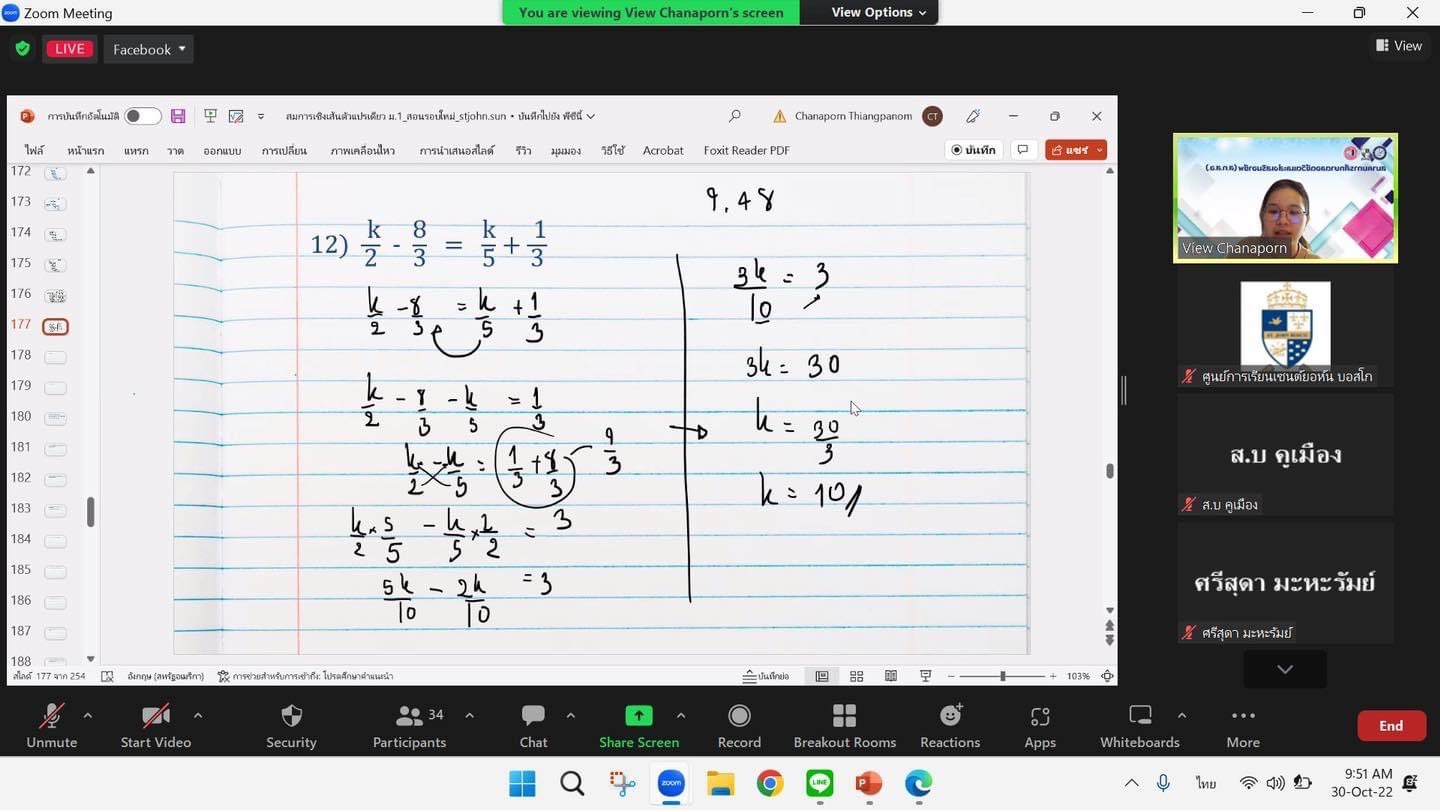 Zoom Meeting
You are viewing View Chanaporn's screen
View Options
LIVE
Facebook
View
การบันทึกอัตโนมัติ
สมการเชิงเส้นตัวแปรเดียว ม.1_สอนรอบใหม่_stjohn.sun • บันทึกไปยัง พีซีนี้
Chanaporn Thiangpanom
CT
ไฟล์ หน้าแรก แทรก วาด ออกแบบ การเปลี่ยน ภาพเคลื่อนไหว การนำเสนอสไลด์ รีวิว มุมมอง วิธีใช้ Acrobat Foxit Reader PDF
บันทึก
แชร์
172
173
174
175
176
177
178
179
180
181
182
183
184
185
186
187
188
9.48
12) k/2 - 8/3 = k/5 + 1/3
k/2 - 8/3 = k/5 + 1/3
k/2 - 8/3 - k/5 = 1/3
k/2 - k/5 = 1/3 + 8/3
9/3
k/2 × 5/5 - k/5 × 2/2 = 3
5k/10 - 2k/10 = 3
3k/10 = 3
3k = 30
k = 30/3
k = 10
View Chanaporn
ศูนย์การเรียนเซนต์ยอห์น บอสโก
ส.บ คูเมือง
ส.บ คูเมือง
ศรีสุดา มะหะรัมย์
ศรีสุดา มะหะรัมย์
สไลด์ 177 จาก 254
อังกฤษ (สหรัฐอเมริกา)
การช่วยสำหรับการเข้าถึง: โปรดศึกษาคำแนะนำ
บันทึกย่อ
103%
Unmute
Start Video
Security
34
Participants
Chat
Share Screen
Record
Breakout Rooms
Reactions
Apps
Whiteboards
More
End
ไทย
9:51 AM
30-Oct-22